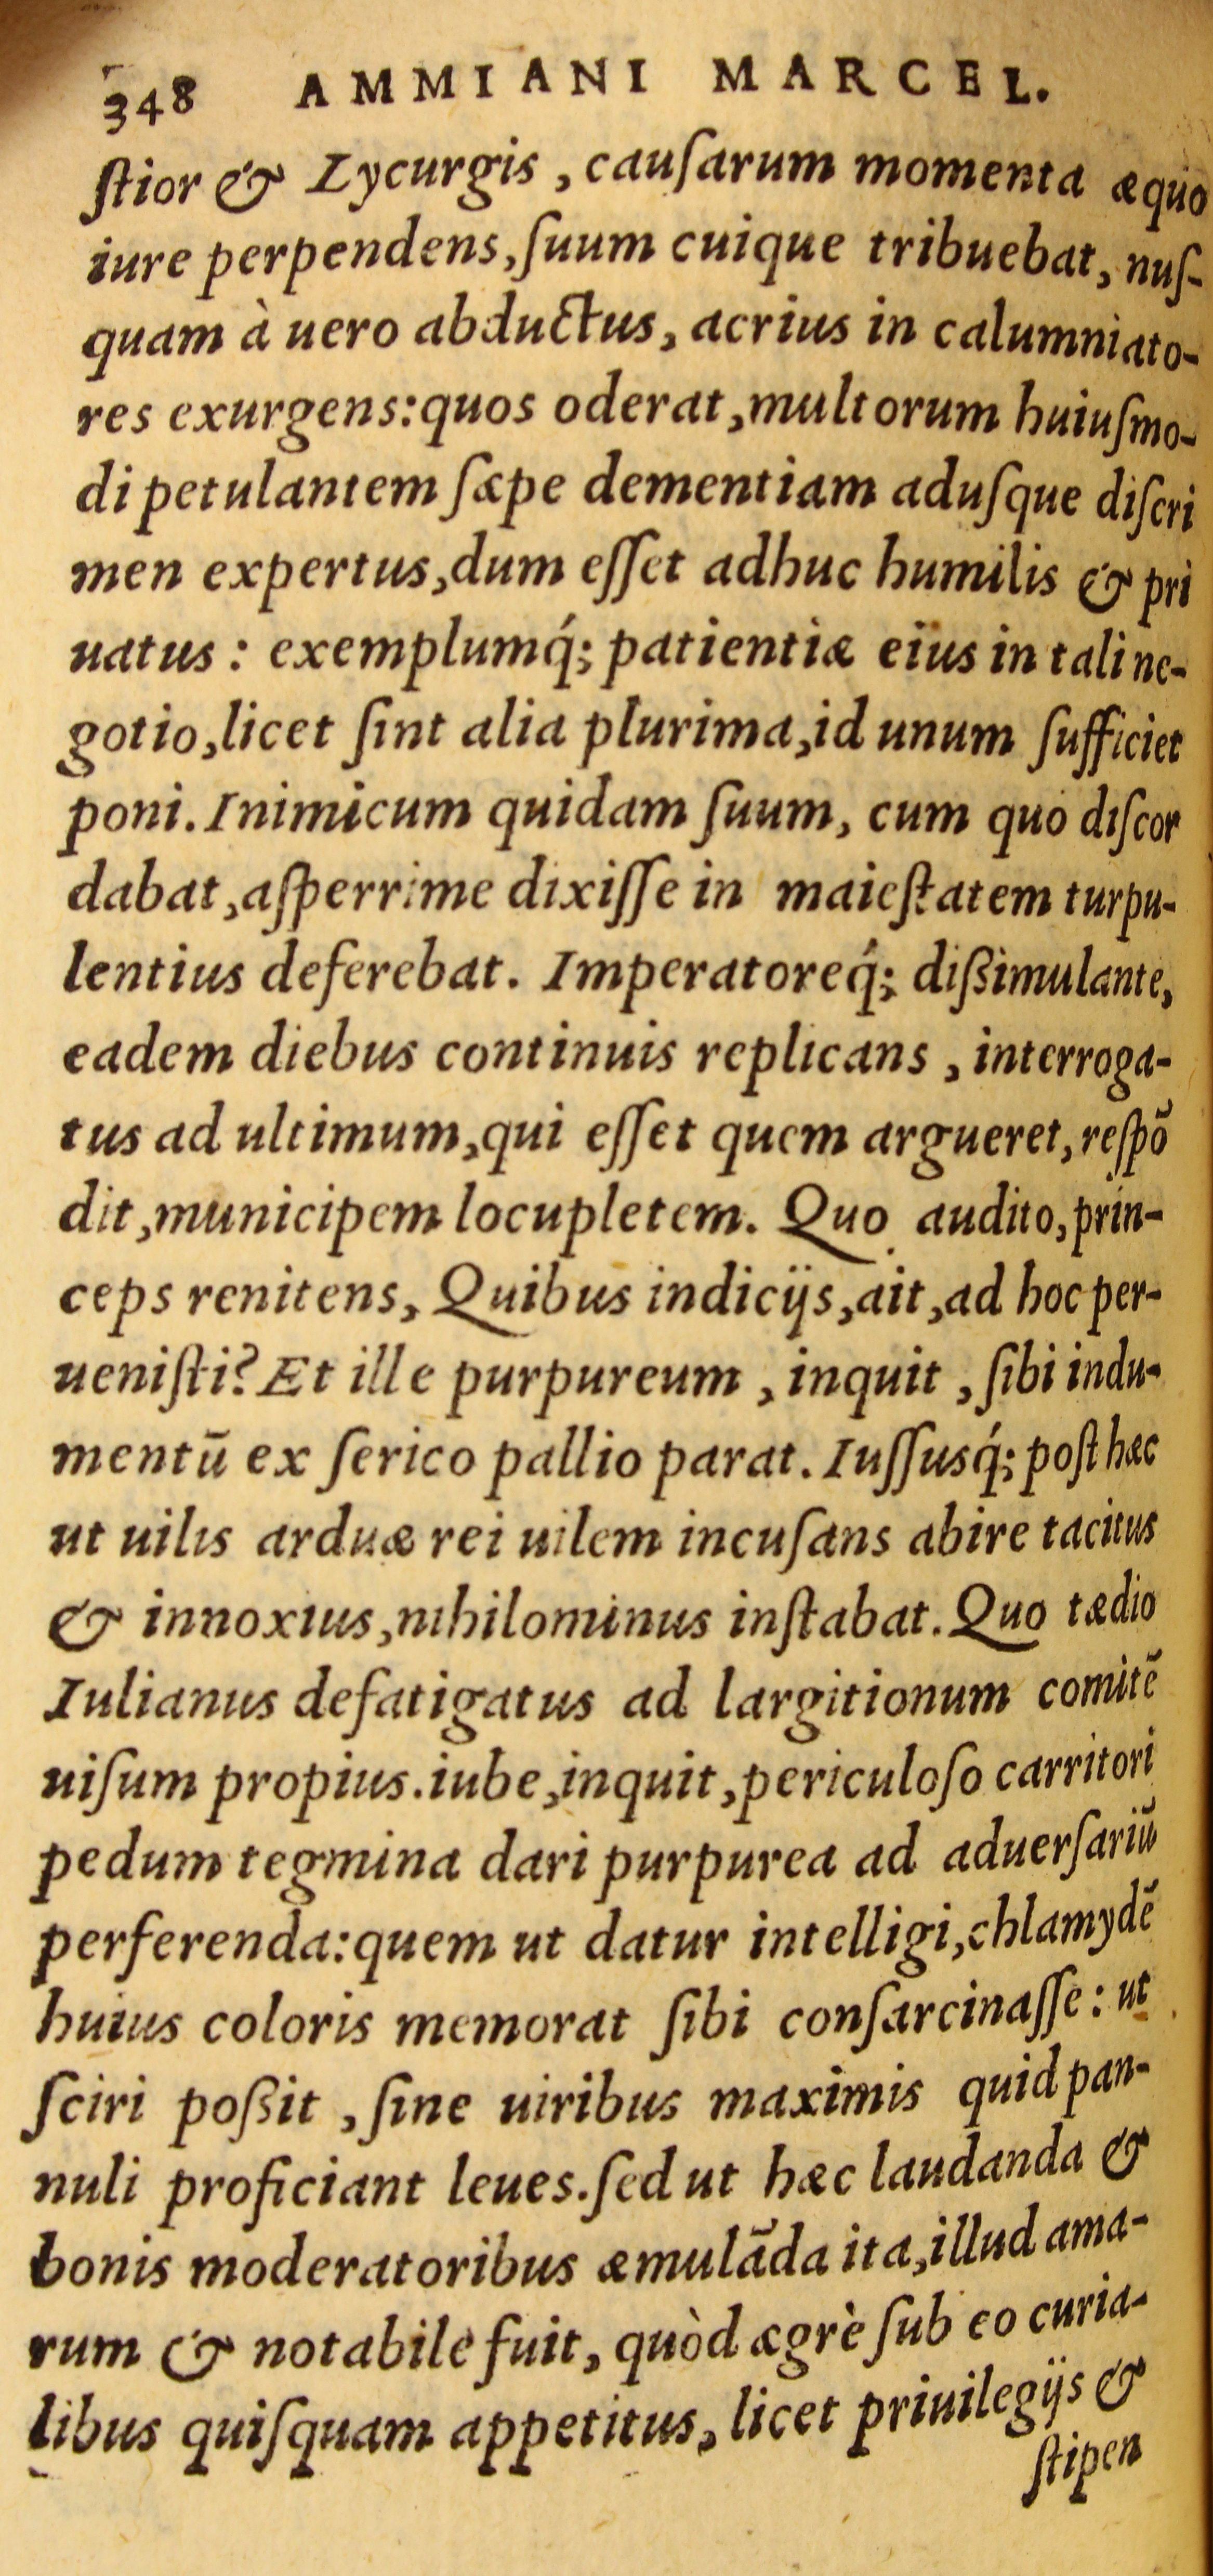 348 AMMIANI MARCEL.
ſtior & Lycurgis, cauſarum momenta æquo
iure perpendens, ſuum cuique tribuebat, nuſ-
quam à uero abductus, acrius in calumniato-
res exurgens: quos oderat, multorum huiuſmo-
di petulantem ſæpe dementiam aduſque diſcri
men expertus, dum eſſet adhuc humilis & pri
uatus: exemplumq́; patientiæ eius in tali ne-
gotio, licet ſint alia plurima, id unum ſufficiet
poni. Inimicum quidam ſuum, cum quo diſcor
dabat, aſperrime dixiſſe in maieſtatem turpu-
lentius deferebat. Imperatoreq́; dißimulante,
eadem diebus continuis replicans, interroga-
tus ad ultimum, qui eſſet quem argueret, reſpō
dit, municipem locupletem. Quo audito, prin-
ceps renitens, Quibus indicijs, ait, ad hoc per-
ueniſti? Et ille purpureum, inquit, ſibi indu-
mentū ex ſerico pallio parat. Iuſſusq́; poſt hæc
ut uilis arduæ rei uilem incuſans abire tacitus
& innoxius, nihilominus inſtabat. Quo tædio
Iulianus defatigatus ad largitionum comitē
uiſum propius. iube, inquit, periculoſo carritori
pedum tegmina dari purpurea ad aduerſariū
perferenda: quem ut datur intelligi, chlamydē
huius coloris memorat ſibi conſarcinaſſe: ut
ſciri poßit, ſine uiribus maximis quid pan-
nuli proficiant leues. ſed ut hæc laudanda &
bonis moderatoribus æmulāda ita, illud ama-
rum & notabile fuit, quòd ægrè ſub eo curia-
libus quiſquam appetitus, licet priuilegijs &
ſtipen